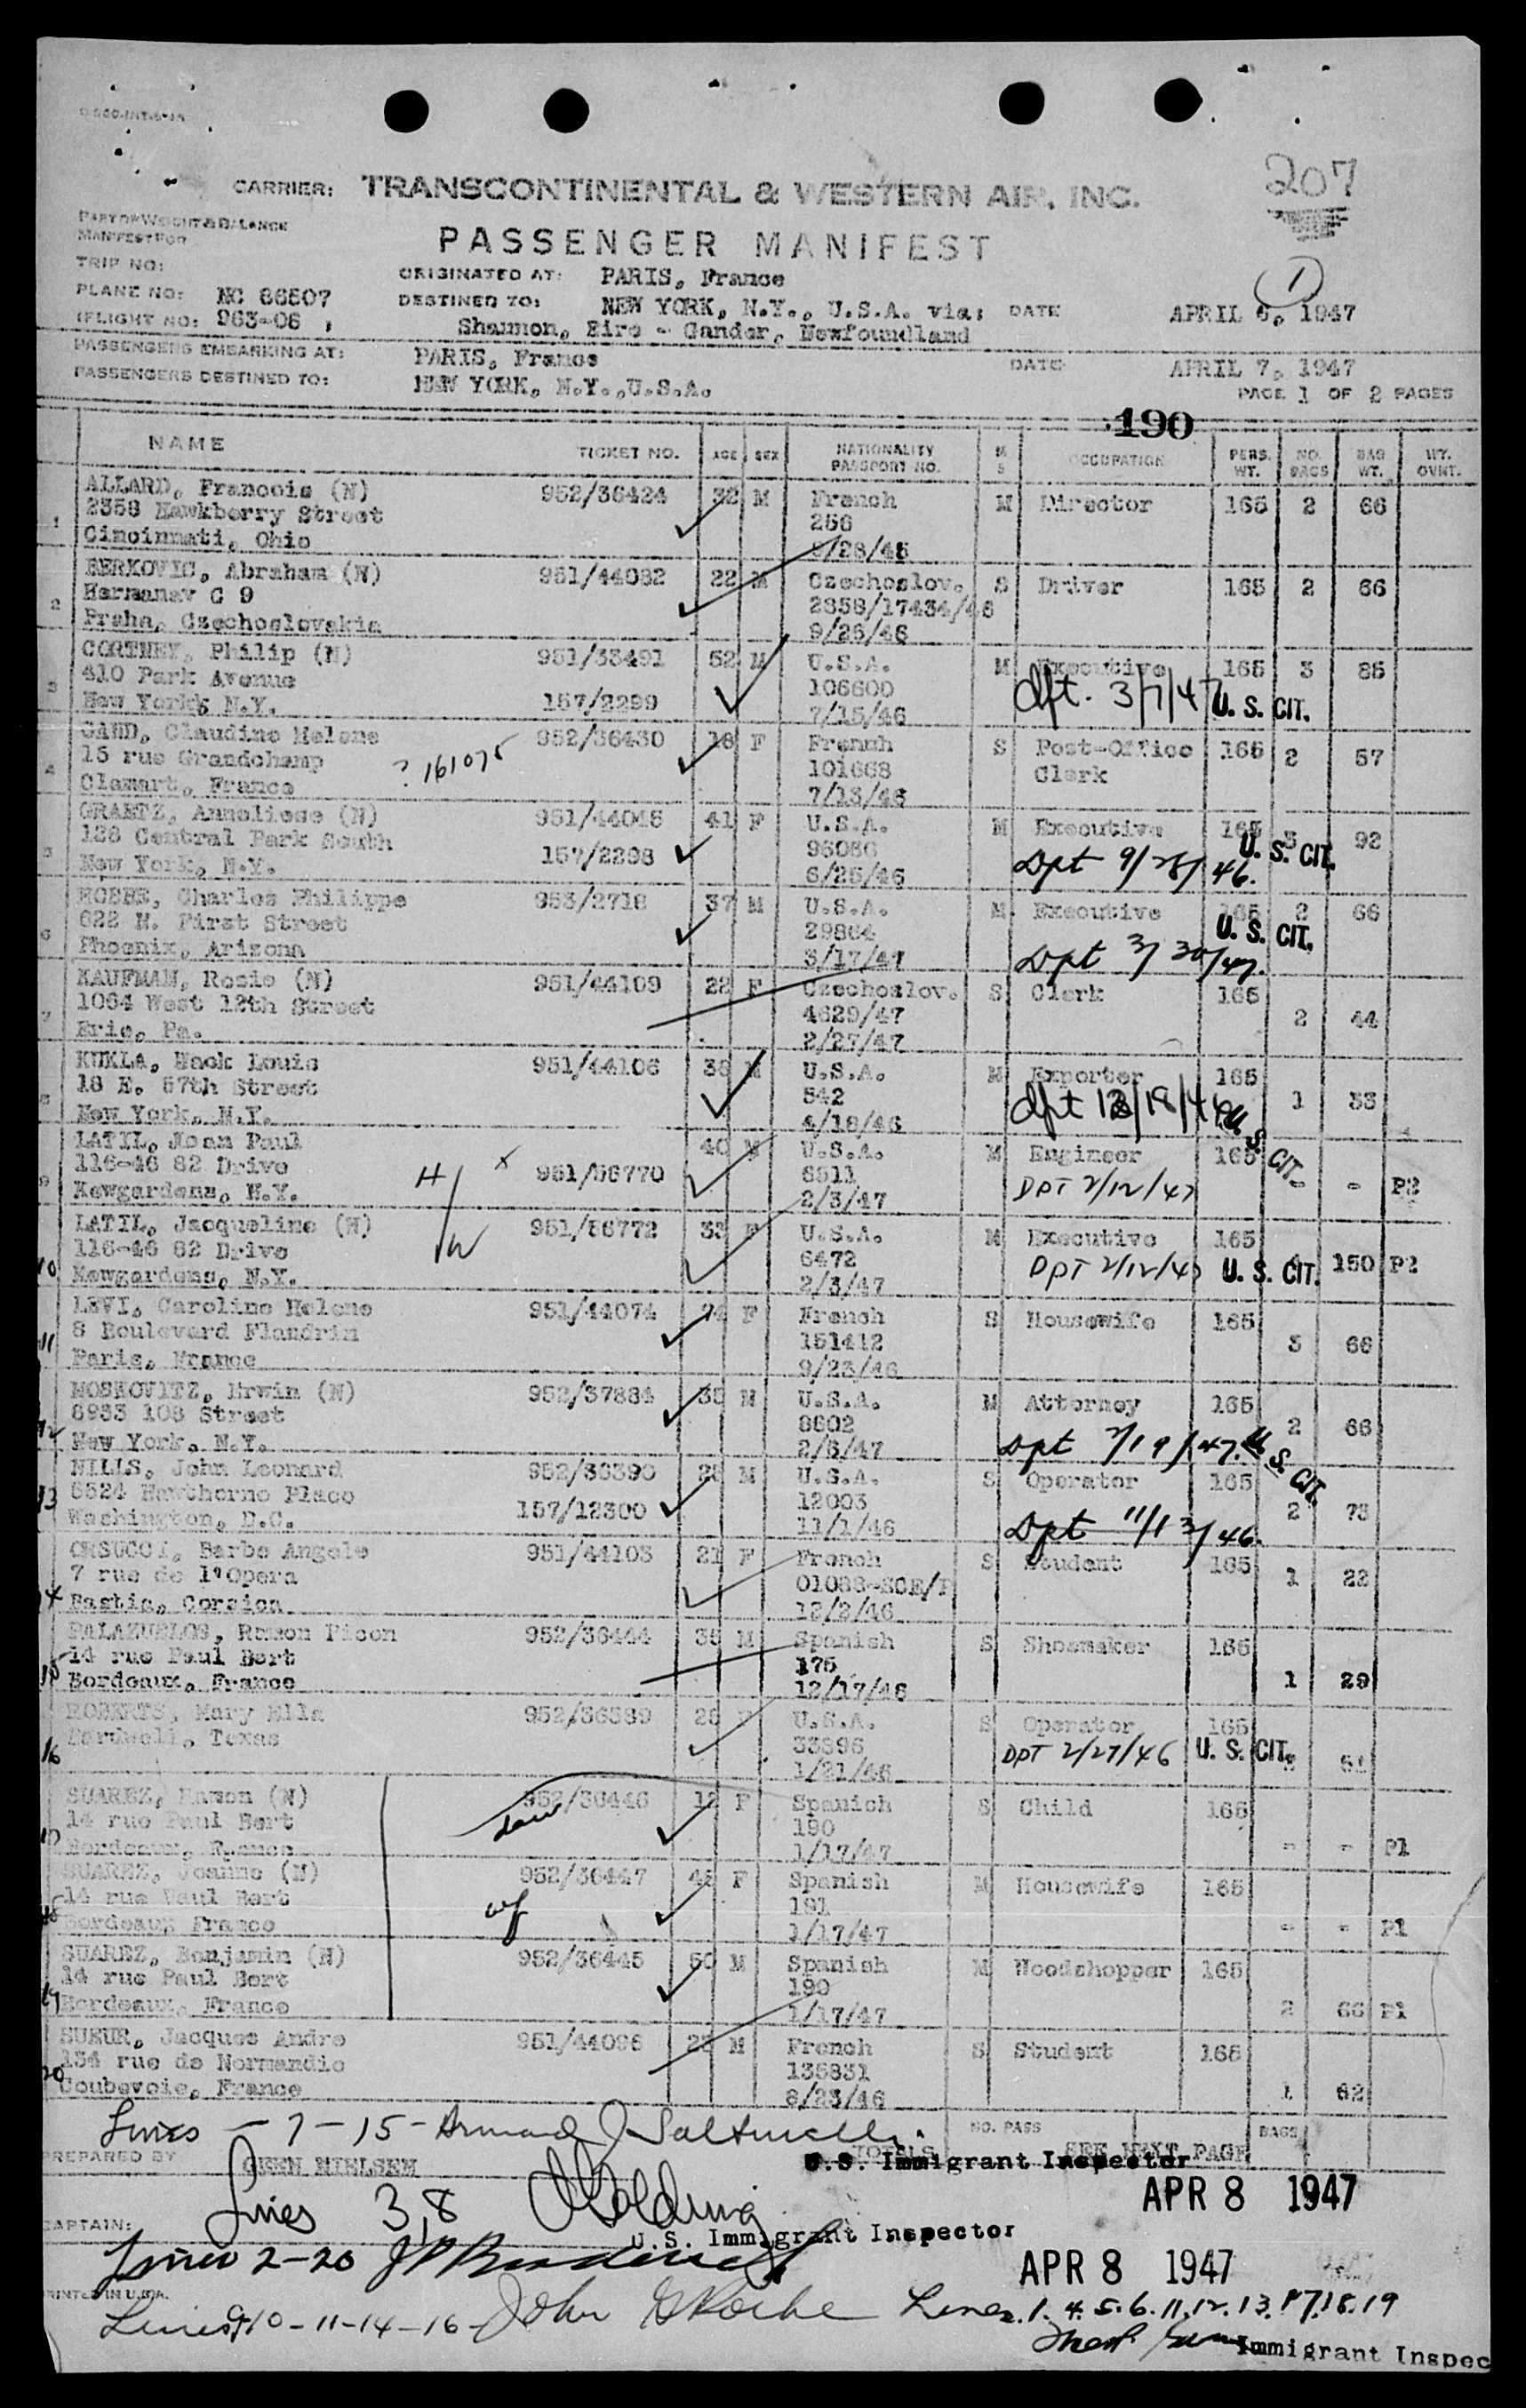 CARRIER: TRANSCONTINENTAL & WESTERN AIR, INC.
207
PART OF WEIGHT & BALANCE
MANIFEST FOR
PASSENGER MANIFEST
TRIP NO:
ORIGINATED AT: PARIS, France
1
PLANE NO: NC 86507
DESTINED TO: NEW YORK, N.Y., U.S.A. via: DATE APRIL 6, 1947
FLIGHT NO: 963-06
Shannon, Eire - Gander, Newfoundland
PASSENGERS EMBARKING AT: PARIS, France DATE APRIL 7, 1947
PASSENGERS DESTINED TO: NEW YORK, N.Y.,U.S.A.
PAGE 1 OF 2 PAGES
190
NAME TICKET NO. AGE SEX NATIONALITY PASSPORT NO. M S OCCUPATION PERS. WT. NO. BAGS BAG WT. WT. OVNT.
ALLARD, Francois (N) 952/36424 32 M French M Director 165 2 66
1 2358 Hawkberry Street 256
Cincinnati, Ohio /28/46
BERKOVIC, Abraham (N) 951/44082 22 M Czechoslov. S Driver 165 2 66
2 Hermanav C 9 2358/17434/46
Praha, Czechoslovakia 9/26/46
CORTNEY, Philip (N) 951/33491 52 M U.S.A. M Executive 165 3 85
3 410 Park Avenue 106600 dpt. 3/7/47 U. S. CIT.
New York, N.Y. 157/2299 7/15/46
GAND, Claudine Helene 952/36430 18 F French S Post-Office 165 2 57
4 15 rue Grandchamp ? 161075 101668 Clerk
Clamart, France 7/13/46
GRAETZ, Anneliese (N) 951/44048 41 F U.S.A. M Executive 165 3 92
5 128 Central Park South 157/2298 96086 U. S. CIT.
New York, N.Y. 6/25/46 Dpt 9/28/46.
Charles Philippe 953/2718 37 M U.S.A. M Executive 165 2 66
6 622 N. First Street 29864 U. S. CIT.
Phoenix, Arizona 3/17/47 Dpt 3/30/47.
KAUFMAN, Rosie (N) 951/44109 22 F Czechoslov. S Clerk 165
7 1064 West 12th Street 4629/47 2 44
Erie, Pa. 2/27/47
KUKLA, Hack Louis 951/44106 38 M U.S.A. M Exporter 165
8 18 E. 57th Street 542 1 33
New York, N.Y. 4/18/46 U. S. CIT.
LATIL, Jean Paul 40 M U.S.A. M Engineer 165 - -
9 116-46 82 Drive H x 951/56770 6511 DPT 2/12/47 P2
Kewgardens, N.Y. 2/3/47
LATIL, Jacqueline (N) W 951/56772 33 F U.S.A. M Executive 165
10 116-46 82 Drive 6472 DPT 2/12/47 U. S. CIT. 150 P2
Kewgardens, N.Y. 2/3/47
LEVI, Caroline Helene 951/44074 74 F French S Housewife 165
11 8 Boulevard Flandrin 151412 3 66
Paris, France 9/23/46
MOSKOVITZ, Erwin (N) 952/37884 35 M U.S.A. M Attorney 165
12 6933 108 Street 8602 2 66
New York, N.Y. 2/6/47 Dpt 2/19/47. U. S. CIT.
NILLS, John Leonard 952/36390 28 M U.S.A. S Operator 165
13 6524 Hawthorne Place 157/12300 12003 2 73
Washington, D.C. 11/1/46 Dpt 11/13/46.
ORSUCCI, Barbe Angele 951/44103 21 F French S Student 165
14 7 rue de l'Opera 1 22
Bastia, Corsica 12/2/46
PALAZUELOS, Ramon Picon 952/36444 35 M Spanish S Shoemaker 165
15 14 rue Paul Bert 175
Bordeaux, France 12/17/46 1 29
ROBERTS, Mary Ella 952/36389 28 F U.S.A. S Operator 165
16 Texas 33896 DPT 2/27/46 U. S. CIT.
1/21/46
SUAREZ, Ramon (N) 952/36446 12 F Spanish S Child 165
17 14 rue Paul Bert 190
Bordeaux, France 1/17/47 - - P1
SUAREZ, Jeanne (N) 952/36447 48 F Spanish M Housewife 165
18 14 rue Paul Bert wf 191
Bordeaux France 1/17/47 - - P1
SUAREZ, Benjamin (N) 952/36445 50 M Spanish M Woodchopper 165
19 14 rue Paul Bert 190
Bordeaux, France 1/17/47 2 66 P1
SUEUR, Jacques Andre 951/44096 23 M French S Student 165
20 154 rue de Normandie 135831
Coubevoie, France 8/23/46 1 62
Lines - 7 - 15 - Armand J. NO. PASS BAGS
PREPARED BY NIELSEN TOTALS SEE NEXT PAGE
U.S. Immigrant Inspector
APR 8 1947
Lines 3, 8 Golding
CAPTAIN: U.S. Immigrant Inspector
Lines 2-20
APR 8 1947
PRINTED IN U.S.A.
Lines 9, 10 - 11 - 14 - 16 - John Lines. 1. 4. 5. 6. 11. 12. 13. 17. 18. 19
Immigrant Inspec